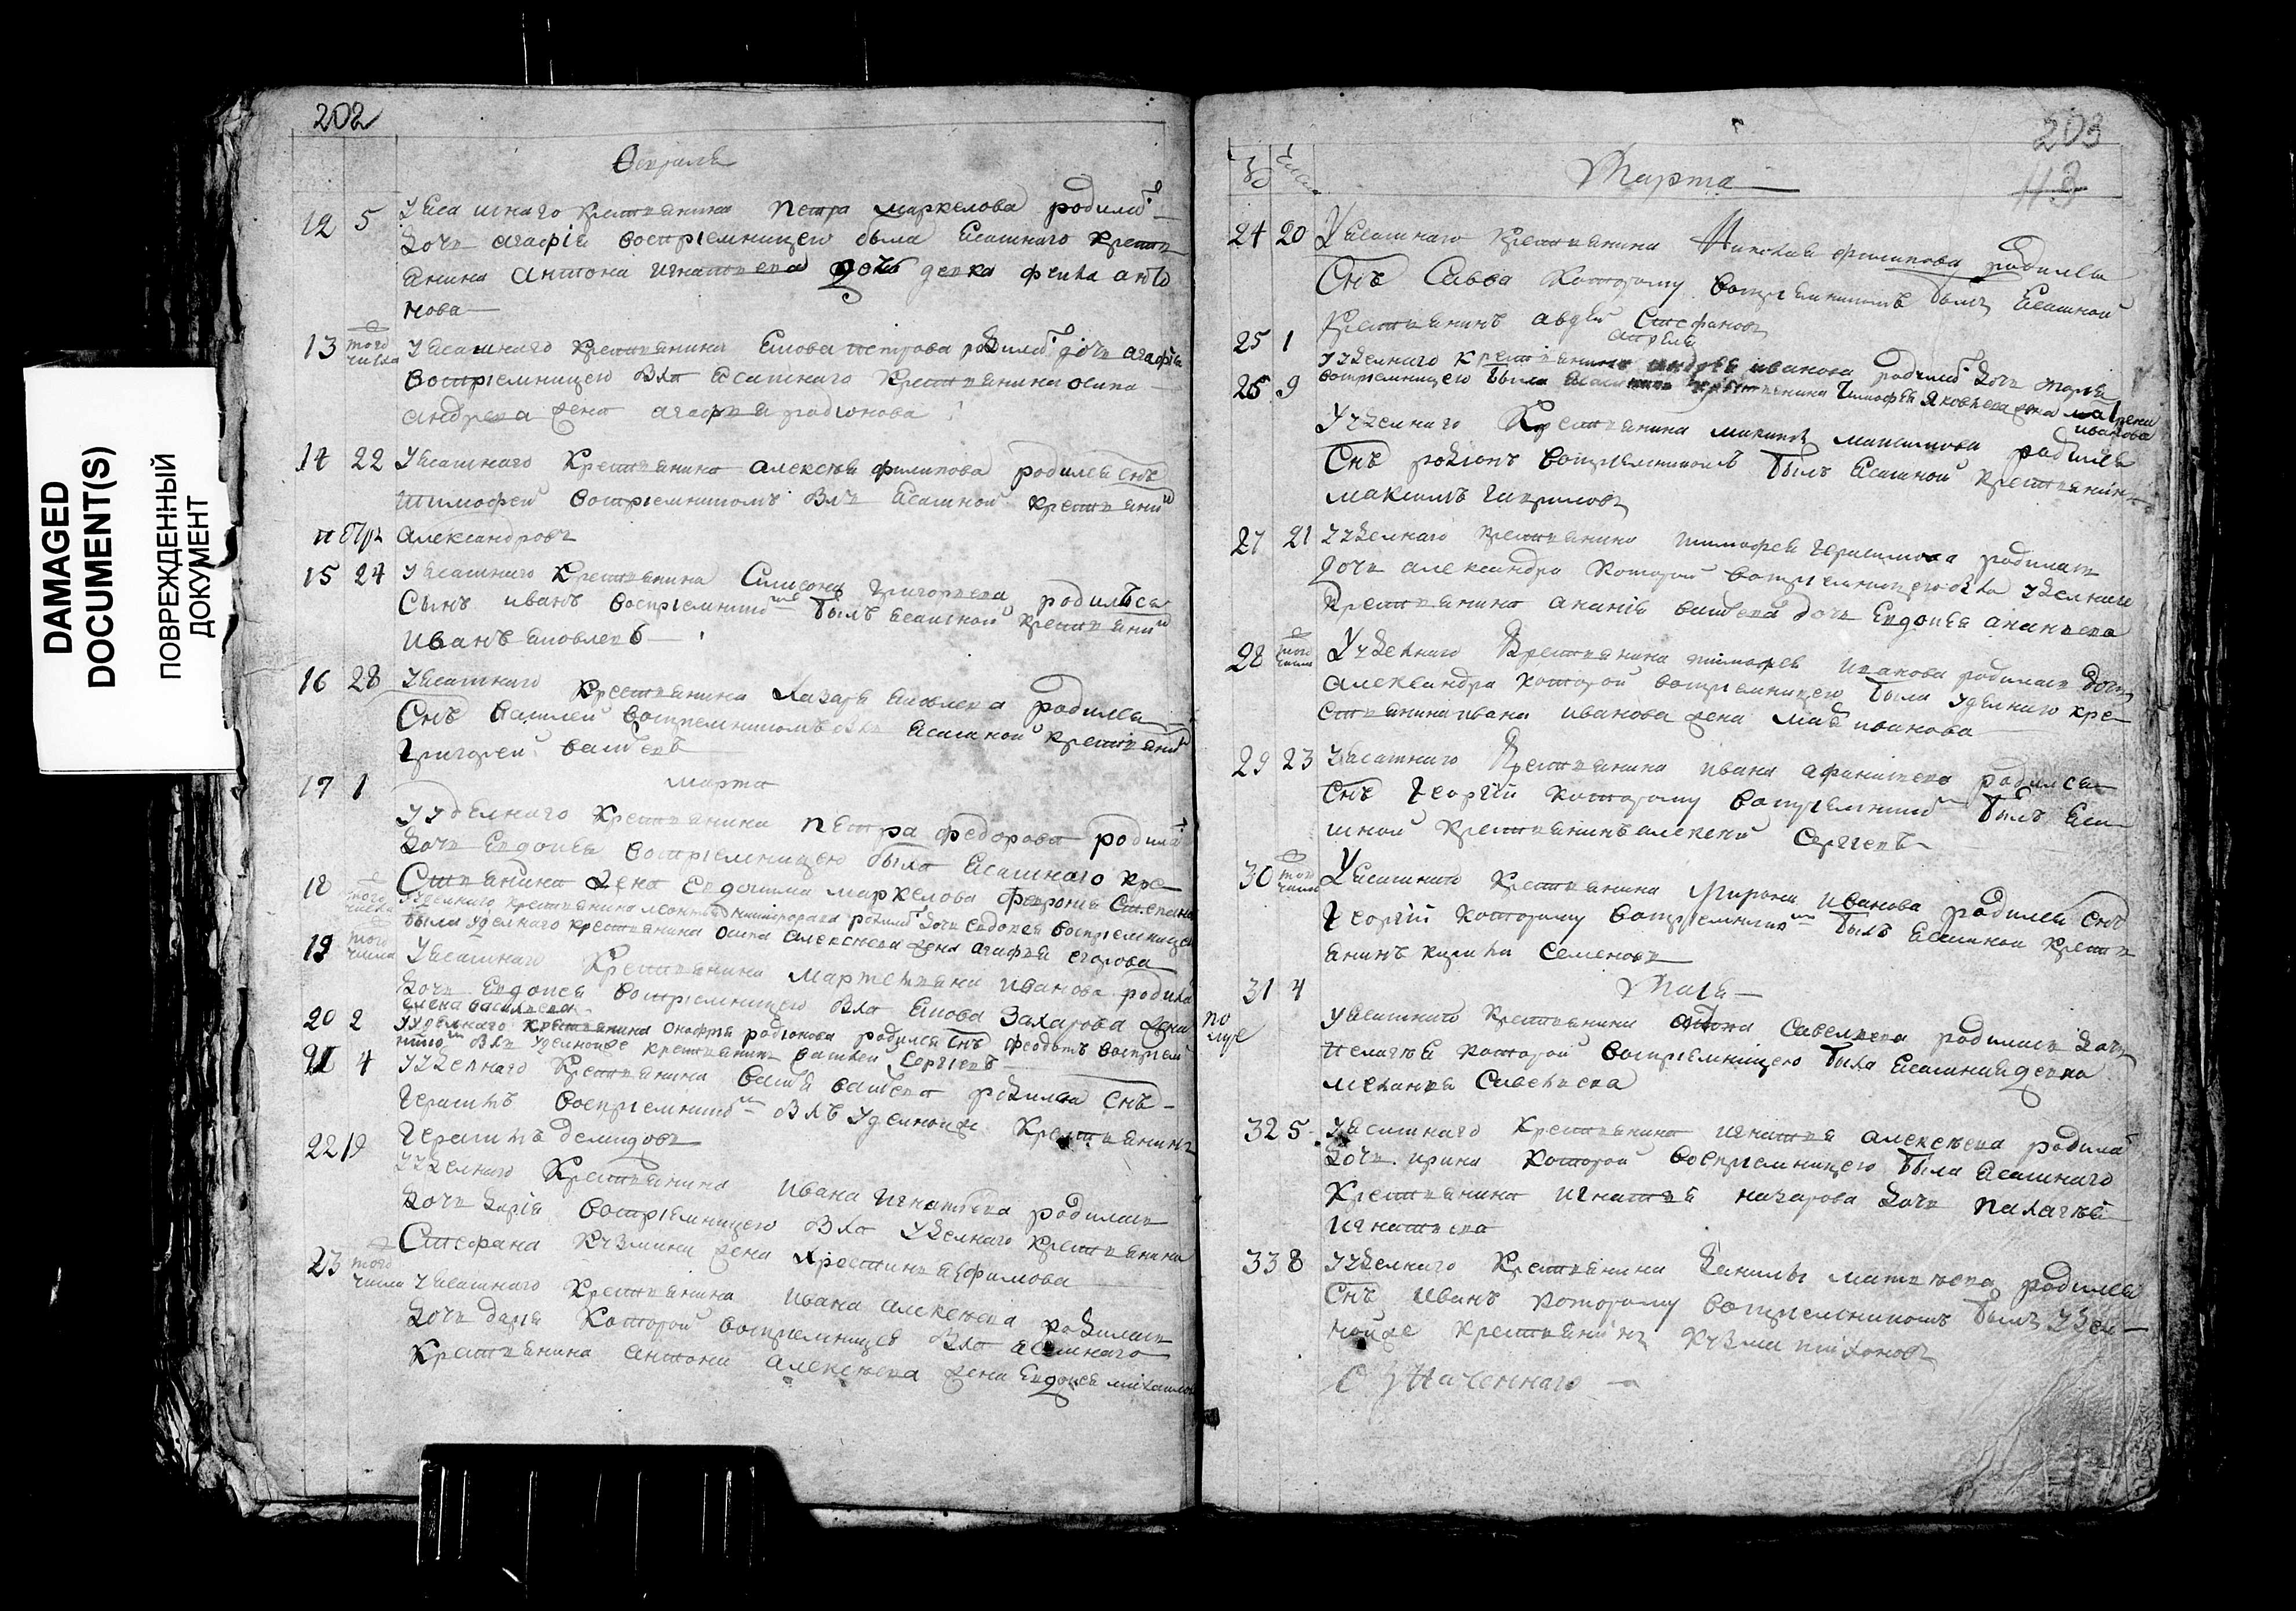 DAMAGED
DOCUMENT(S)
ПОВРЕЖДЕННЫЙ
ДОКУМЕНТ
202
Февраля
12 5 У ясашнаго крестьянина петра маркелова родилас
дочь агафiя восприемницею была ясашнаго кресть
янина антона игнатьева дочь девка фекла анто
нова
13 того числа У ясашнаго крестьянина якова петрова родилас дочь агафiя
восприемницею была ясашнаго крестьянина осипа
андреева жена агафья родионова
14 22 У ясашнаго крестьянина алексея филипова родился снъ
тимофей восприемникомъ былъ ясашной крестьянин
Александровъ
15 24 У ясашнаго крестьянина Симеона григорьева родилъся
Сынъ иванъ восприемником былъ ясашной крестьянин
иванъ яковлевъ
16 28 У ясашнаго крестьянина лазаря яковлева родился
Снъ василей восприемникомъ былъ ясашной крестьянин
григорей васильевъ
17 1 марта
У удельнаго крестьянина петра федорова родилас
дочь Евдокея восприемницею была ясашнаго кре
Стьянина жена Евдокима маркелова феврония Степанова
18 того числа У удельнаго крестьянина леонтья никифорова родилас дочь евдокея восприемницею
была удельнаго крестьянина осипа алексеева жена агафья егорова
19 того числа У ясашнаго крестьянина мартемьяна иванова родилас
дочь Евдокея восприемницею была якова захарова жена
елена васильева
20 2 У удельнаго крестьянина онофрия родионова родился снъ феодотъ восприем
никомъ былъ удельной же крестьянинъ василей Сергеевъ
21 4 У удельнаго крестьянина василья васильева родился снъ
герасимъ восприемником былъ удельной же крестьянинъ
герасимъ демидовъ
22 19 У удельнаго крестьянина ивана игнатьева родилась
дочь дарiя восприемницею была удельнаго крестьянина
Стефана кузмина жена Хрестина ефимова
23 того числа У ясашнаго крестьянина ивана алексеева родилась
дочь дарья которой восприемницею была ясашнаго
крестьянина антона алексеева жена Евдокея михаилова
203
113
Марта
24 20 У ясашнаго крестьянина Николая филипова родился
Снъ Савва которому восприемникомъ былъ ясашной
крестьянинъ авдей Стефановъ
апреля
25 1 У удельнаго крестьянина андрея иванова родилас дочь марья
восприемницею была ясашнаго крестьянина тимофея яковлева жена матрена
иванова
26 9 У удельнаго крестьянина максимова родился
Снъ родионъ восприемникомъ былъ ясашной крестьянинъ
максимъ гавриловъ
27 21 У удельнаго крестьянина тимофея герасимова родилась
дочь александра которой восприемницею была удельнаго
крестьянина ананiя васильева дочь Евдокея ананьева
28 того числа У удельнаго крестьянина тимофея иванова родилась дочь
александра которой восприемницею была удельнаго кре
стьянина ивана иванова жена иванова
29 23 У ясашнаго крестьянина ивана афанасьева родился
снъ георгiй которому восприемником былъ яса
шной крестьянинъ алексей Сергеевъ
30 того числа У ясашнаго крестьянина Мирона иванова родился снъ
георгiй которому восприемником былъ ясашной кресть
янинъ кирила семеновъ
31 4 Маiя
У ясашнаго крестьянина Савельева родилась дочь
пелагея которой восприемницею была ясашная девка
меланья Савельева
32 5 У ясашнаго крестьянина игнатья алексеева родилас
дочь ирина которой восприемницею была ясашнаго
крестьянина игнатья назарова дочь палагея
игнатьева
33 8 У удельнаго крестьянина данилы матвеева родился
Снъ иванъ которому восприемникомъ былъ удель
ной же крестьянинъ кузма тихоновъ